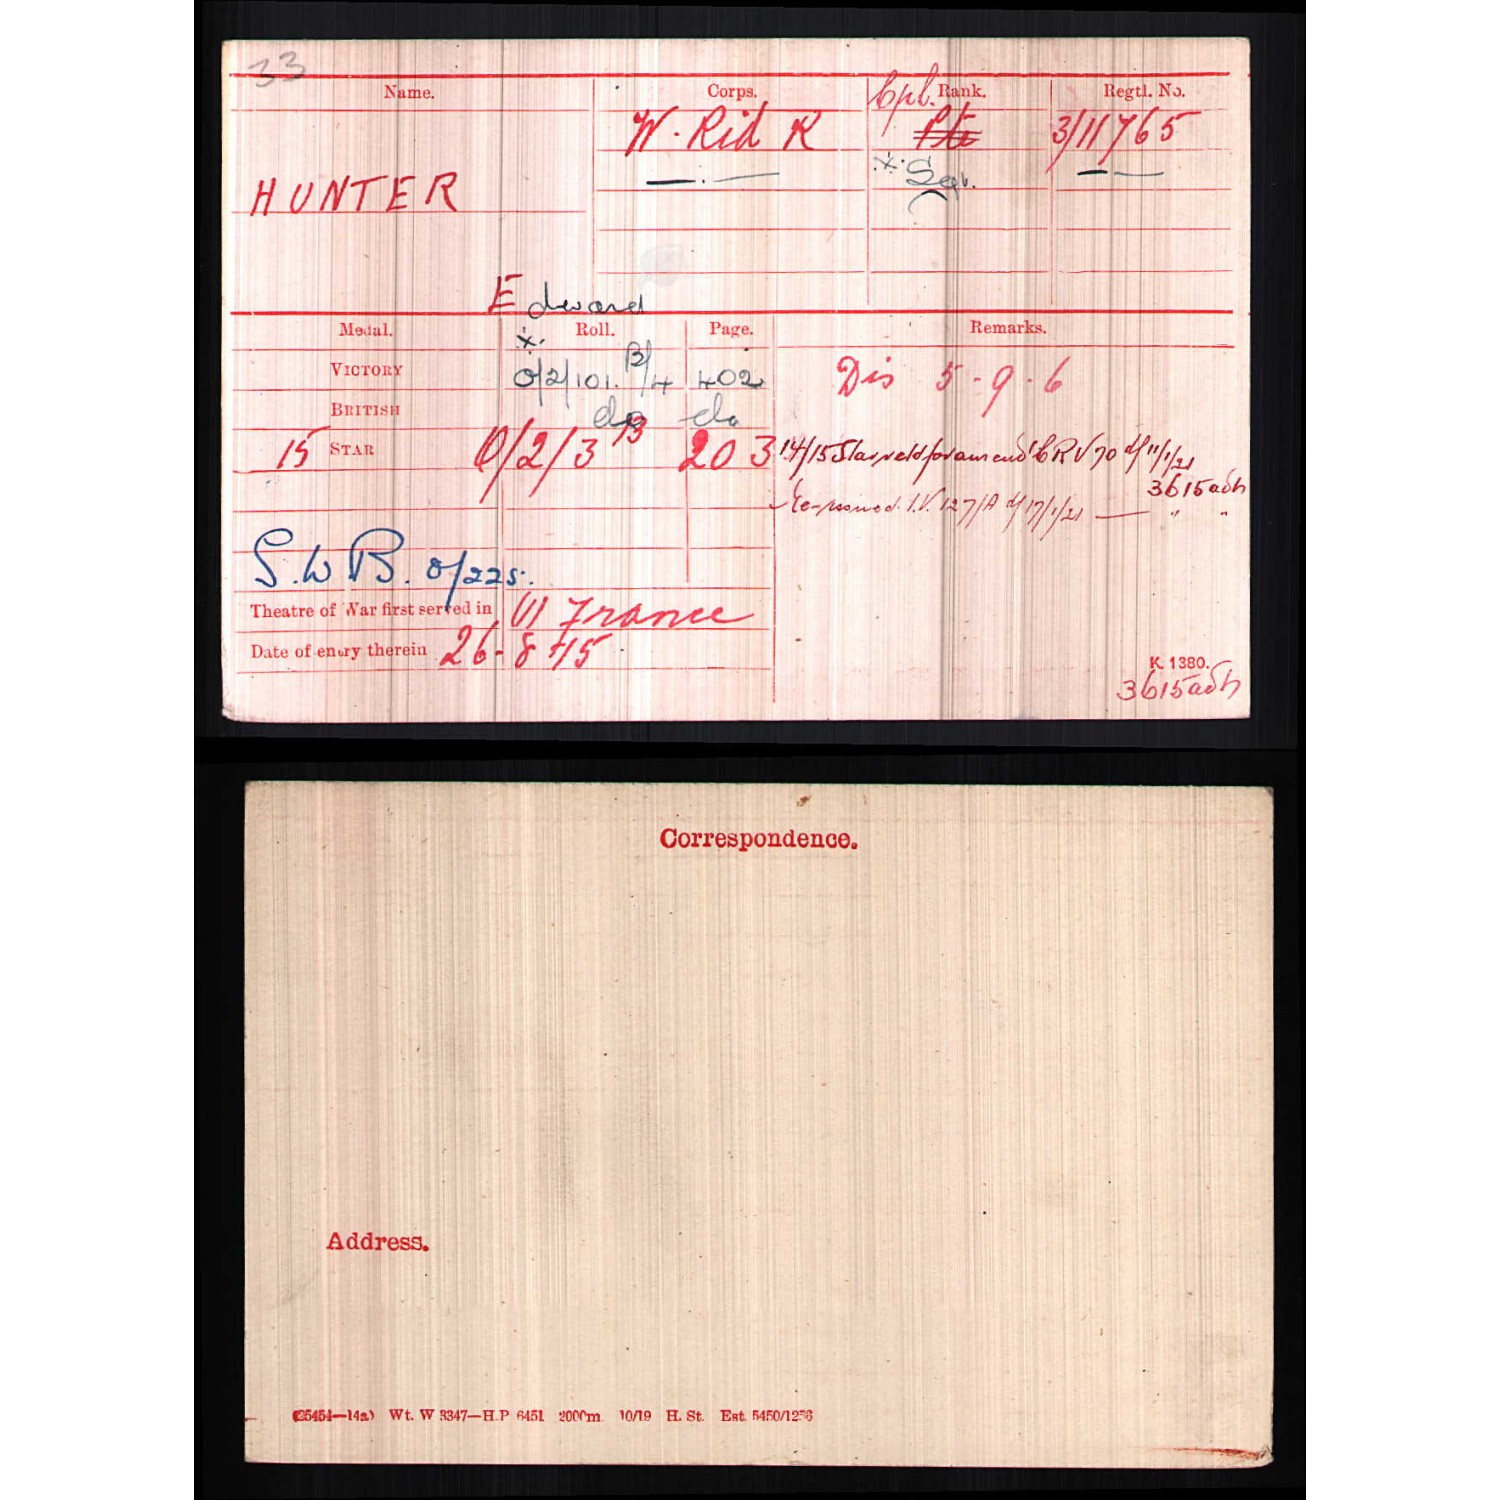 33
Name. Corps. Rank. Regtl. No.
Cpl.
W. Rid R Pte 3/11765
HUNTER —.— x. Sgt. — —
Edward
Medal. Roll. Page. Remarks.
x.
VICTORY O/2/101. B/4 402 Dis 5-9-6
BRITISH do do
15 STAR O/2/3 B 203 14/15 Star retd for amend CRV 70 d/ 11/1/21
3615 adh
Re-issued I.V. 127/A d/ 17/1/21 — " "
S.W.B. O/225.
Theatre of War first served in (1) France
Date of entry therein 26-8-15
K. 1380.
3615 adh
Correspondence.
Address.
(25454—14a) Wt. W 3347—H.P 6451 2000m. 10/19 H. St. Est. 5450/1256